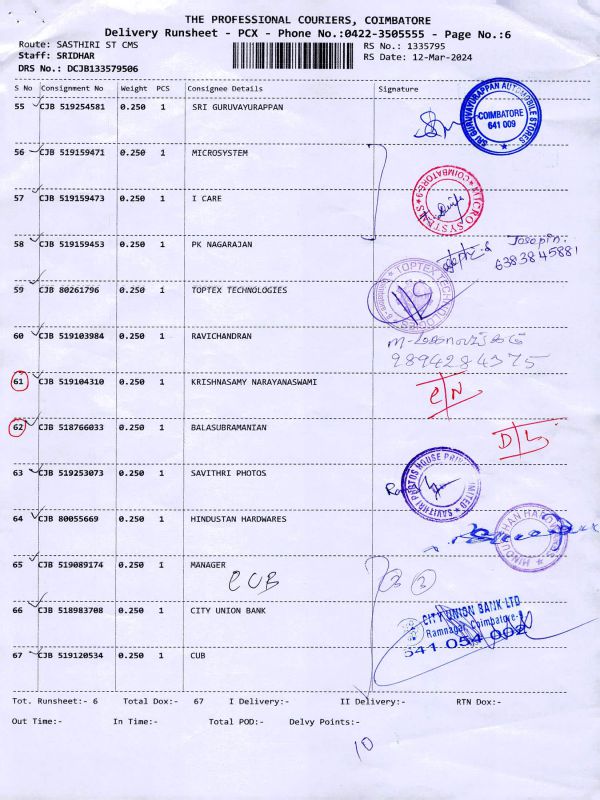 THE PROFESSIONAL COURIERS, COIMBATORE
Delivery Runsheet - PCX - Phone No.:0422-3505555 - Page No.:6
Route: SASTHIRI ST CMS RS No.: 1335795
Staff: SRIDHAR RS Date: 12-Mar-2024
DRS No.: DCJB133579506
S No Consignment No Weight PCS Consignee Details Signature
55 CJB 519254581 0.250 1 SRI GURUVAYURAPPAN
SRI GURUVAYURAPPAN AUTOMOBILE STORES COIMBATORE 641 009
56 CJB 519159471 0.250 1 MICROSYSTEM
57 CJB 519159473 0.250 1 I CARE
MICROSYSTEM COIMBATORE-9
58 CJB 519159453 0.250 1 PK NAGARAJAN
Josepin.
6383845881
59 CJB 80261796 0.250 1 TOPTEX TECHNOLOGIES
TOPTEX TECHNOLOGIES
60 CJB 519103984 0.250 1 RAVICHANDRAN
9894284375
61 CJB 519104310 0.250 1 KRISHNASAMY NARAYANASWAMI
C/N
62 CJB 518766033 0.250 1 BALASUBRAMANIAN
D/L
63 CJB 519253073 0.250 1 SAVITHRI PHOTOS
SAVITHRI PHOTOS HOUSE PRIVATE LIMITED
64 CJB 80055669 0.250 1 HINDUSTAN HARDWARES
HINDUSTHAN HARDWARES
65 CJB 519089174 0.250 1 MANAGER
CUB
66 CJB 518983708 0.250 1 CITY UNION BANK
CITY UNION BANK LTD
Ramnagar, Coimbatore-
641 054 002
67 CJB 519120534 0.250 1 CUB
Tot. Runsheet:- 6 Total Dox:- 67 I Delivery:- II Delivery:- RTN Dox:-
Out Time:- In Time:- Total POD:- Delvy Points:-
10